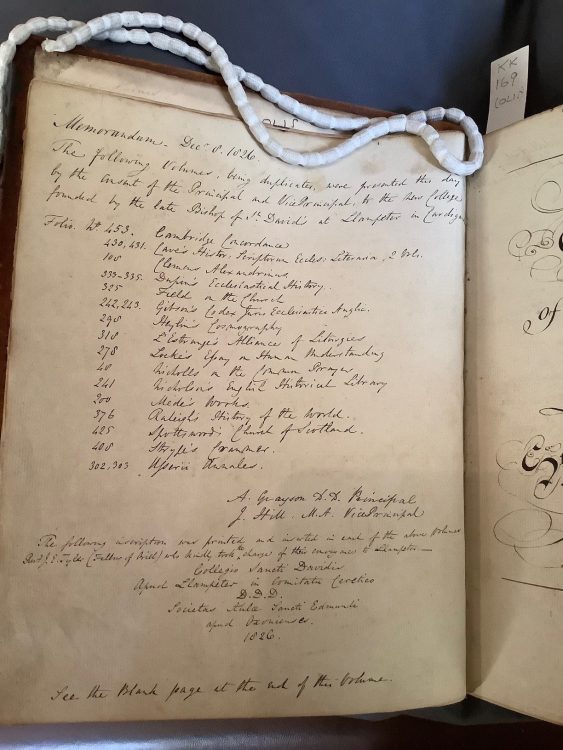 KK
169
(OLIS
OLIS
Memorandum. Decr 8. 1826.
The following Volumes, being duplicates, were presented this day
by the consent of the Principal and VicePrincipal, to the New College
founded by the late Bishop of St. David's at Llampeter in Cardigan
Folio. No. 453. Cambridge Concordance
430, 431. Cave's Histor. Scriptorum Eccles. Literaria, 2 Vols.
108 Clemens Alexandrinus
333-335. Dupin's Ecclesiastical History.
325 Field on the Church
242, 243. Gibson's Codex Juris Ecclesiastice Anglic.
298 Heylin's Cosmography
318 L'Estrange's Alliance of Liturgies
278 Locke's Essay on Human Understanding
40 Nicholls on the Common Prayer
241 Nicholson's English Historical Library
200 Mede's Works.
376 Raleigh's History of the World.
425 Spottswood's Church of Scotland.
408 Strype's Cranmer.
302, 303 Usserii Annales.
A. Grayson D.D. Principal
J. Hill. M.A. VicePrincipal
The following inscription was printed and inserted in each of the above Volumes
J. E. Tyler (Fellow of Oriel) who kindly took the charge of their conveyance to Llampeter—
Collegio Sancti Davidis
Apud Llampeter in Comitatu Ceretico
D.D.D.
Societas Aulæ Sancti Edmundi
apud Oxonienses.
1826.
See the Blank page at the end of this Volume.
of